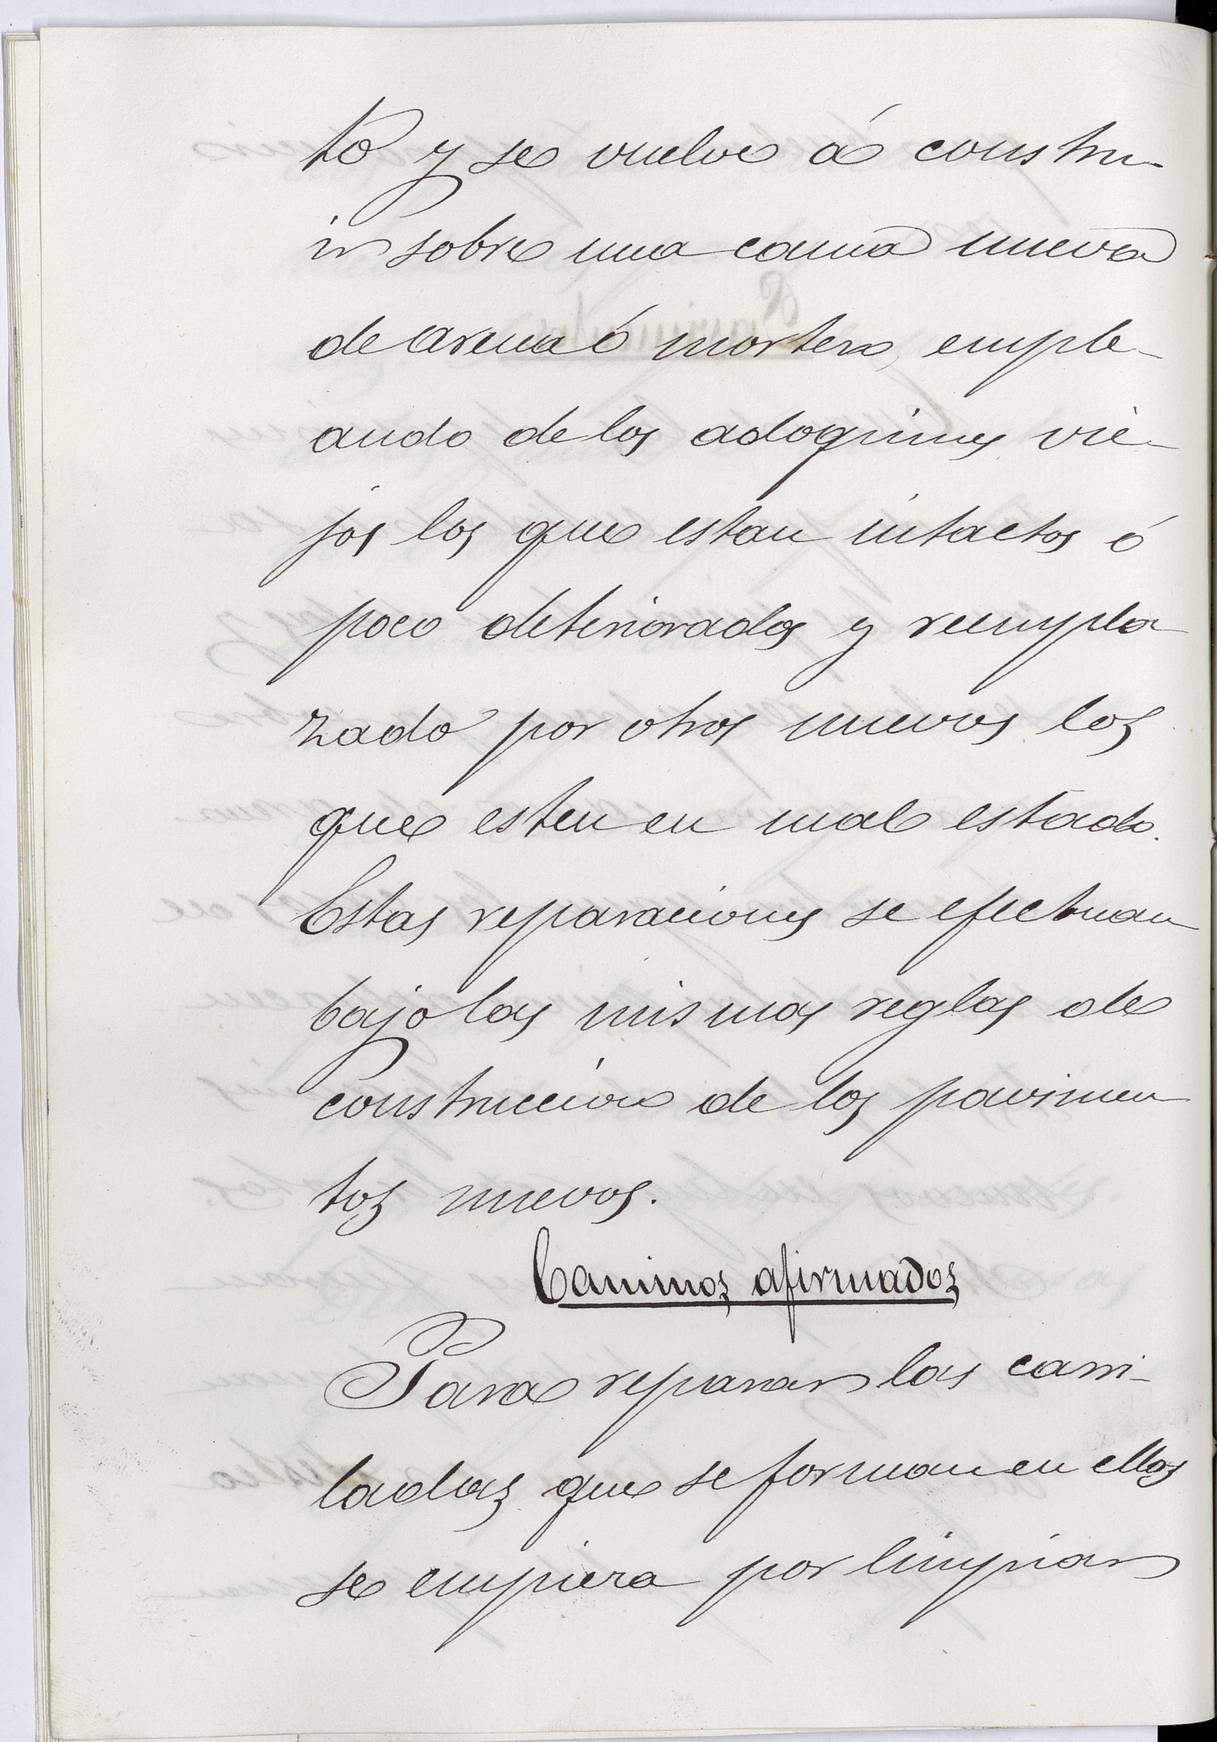 to y se vuelve á constru-
ir sobre una cama nueva
de arena ó mortero, emple-
ando de los adoquines vie-
jos los que estan intactos ó
poco deteriorados y reempla
zado por otros nuevos los
que esten en mal estado.
Estas reparaciones se efectuan
bajo las mismas reglas de
construccion de los pavimen
tos nuevos.
Caminos afirmados
Para reparar las carri-
ladas que se forman en ellos
se empieza por limpiar